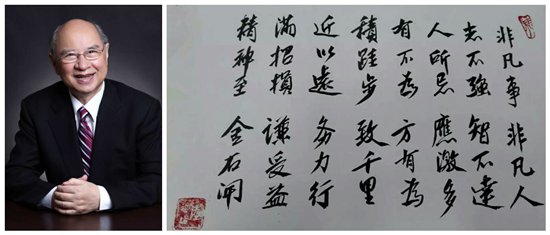 非凡事 非凡人
志不強 智不達
人所忌 應激多
有不為 方有為
積跬步 致千里
近以遠 务力行
滿招損 謙受益
精神至 金石開